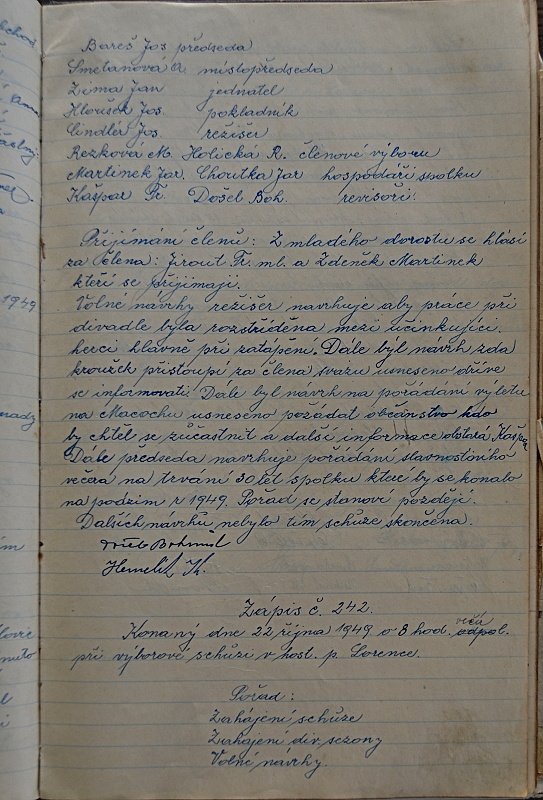 Bareš Jos předseda
Smetanová A. místopředseda
Zima Jan jednatel
Kloušek Jos. pokladník
Cindlér Jos. režiser
Rezková M. Holická R. členové výboru
Martinek Jar. Choutka Jar hospodáři spolku
Kašpar Fr. Došel Boh. revisoři.
Přijímání členů: Z mladého dorostu se hlásí
za člena: Jirout Fr. ml. a Zdeněk Martinek
kteří se přijimaji.
Volné návrhy režišer navrhuje aby práce při
divadle byla rozstřiděna mezi učinkující
herci hlavně při zatápění. Dále byl návrh zda
kroužek přistoupí za člena svazu usneseno dříve
se informovati. Dále byl návrh na pořádání výletu
na Macochu usneseno požádat obecenstvo kdo
by chtěl se zůčastnit a další informace obstará Kašpar
Dále předseda navrhuje pořádání slavnostního
večera na trvání 30 let spolku které by se konalo
na podzim r 1949. Pořad se stanoví později.
Dalších návrhů nebylo tím schůze skončena.
Bohumil
Hemelík K.
Zápis č. 242.
Konaný dne 22 října 1949 o 8 hod. večer odpol.
při výborové schůzi v host. p. Lorence.
Pořad:
Zahájení schůze
Zahájení div. sezony
Volné návrhy.
1949